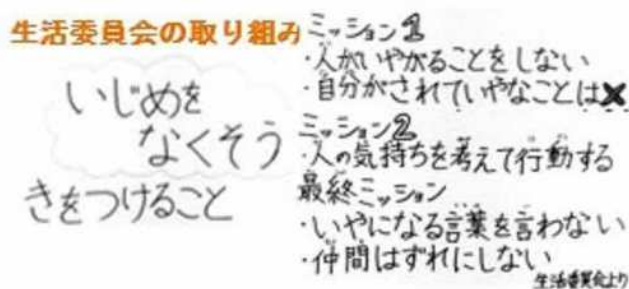 生活委員会の取り組み
いじめを
なくそう
きをつけること
ミッション1
・人がいやがることをしない
・自分がされていやなことは✖
ミッション2
・人の気持ちを考えて行動する
最終ミッション
・いやになる言葉を言わない
・仲間はずれにしない
生活委員会より